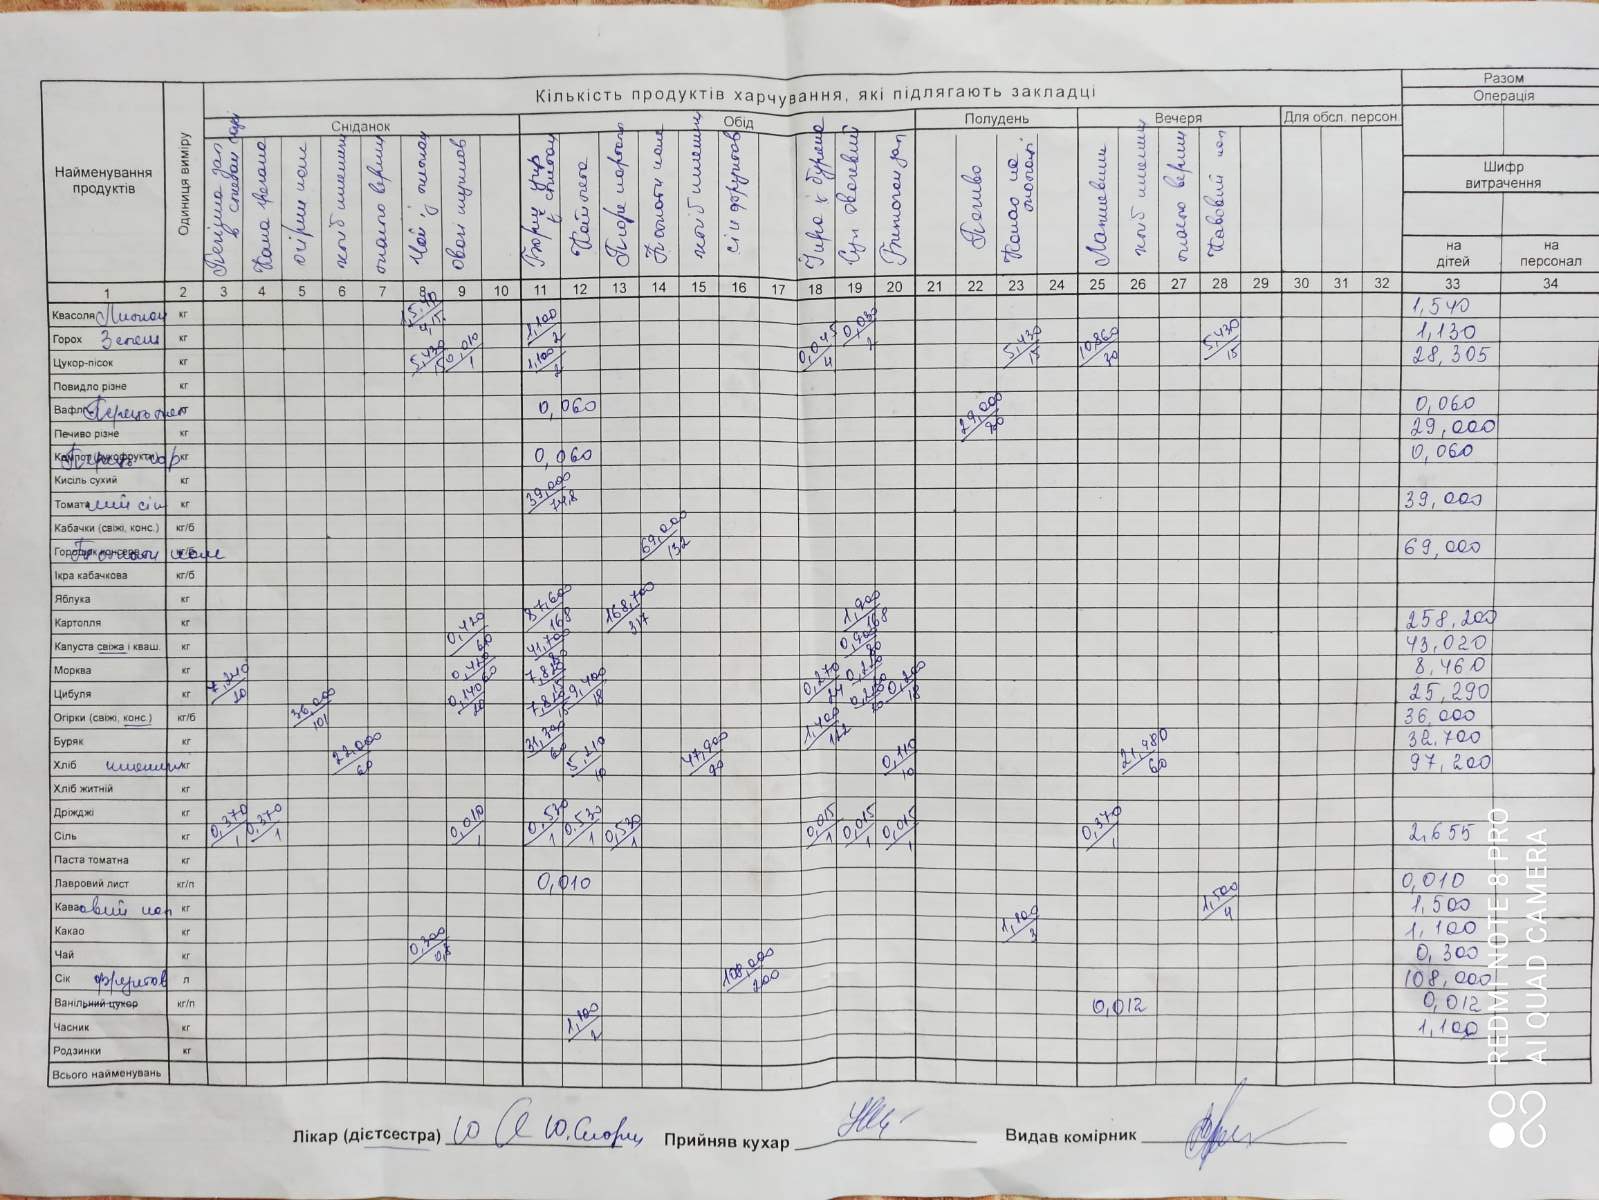 Кількість продуктів харчування, які підлягають закладці
Разом
Операція
Шифр витрачення
на дітей
на персонал
Найменування продуктів
Одиниця виміру
Сніданок
Обід
Полудень
Вечеря
Для обсл. персон.
Каша гречана
огірки конс
хліб пшенич
Чай з лимон
овочі тушков
Борщ укр з сметан
Котлета
Пюре картоп
Томати конс
хліб пшенич
сік фруктов
Суп овочевий
Печиво
Какао на
хліб пшенич
Кавовий нап
1 2 3 4 5 6 7 8 9 10 11 12 13 14 15 16 17 18 19 20 21 22 23 24 25 26 27 28 29 30 31 32 33 34
Квасоля Лимон кг 1,540
Горох Зелень кг 1,100/2 0,030/2 1,130
Цукор-пісок кг 5,430/15 0,010/1 1,100/2 0,045/4 5,430/15 10,860/30 5,430/15 28,305
Повидло різне кг
Вафлі кг 0,060 0,060
Печиво різне кг 29,000 29,000
Компот (сухофрукти) кг 0,060 0,060
Кисіль сухий кг
Томатний сік кг 39,000 39,000
Кабачки (свіжі, конс.) кг/б
Горошок консерв. Томати конс кг/б 69,000/132 69,000
Ікра кабачкова кг/б
Яблука кг
Картопля кг 87,600/168 168,700/317 1,900 258,200
Капуста свіжа і кваш. кг 0,420/60 41,700/80 0,900 43,020
Морква кг 7,815 0,270 8,460
Цибуля кг 7,240/20 0,140/20 7,815/15 9,400/18 0,200/18 25,290
Огірки (свіжі, конс.) кг/б 36,000/101 36,000
Буряк кг 31,300/60 1,400 32,700
Хліб пшенич кг 22,000/60 5,210/10 47,900/90 0,110/10 21,980/60 97,200
Хліб житній кг
Дріжджі кг
Сіль кг 0,370/1 0,370/1 0,010/1 0,530/1 0,530/1 0,530/1 0,015/1 0,015/1 0,015/1 0,370/1 2,655
Паста томатна кг
Лавровий лист кг/п 0,010 0,010
Кавовий нап кг 1,500/4 1,500
Какао кг 1,100/3 1,100
Чай кг 0,300/0,8 0,300
Сік фруктов л 108,000/200 108,000
Ванільний цукор кг/п 0,012 0,012
Часник кг 1,100/2 1,100
Родзинки кг
Всього найменувань
Лікар (дієтсестра)
Прийняв кухар
Видав комірник
REDMI NOTE 8 PRO
AI QUAD CAMERA